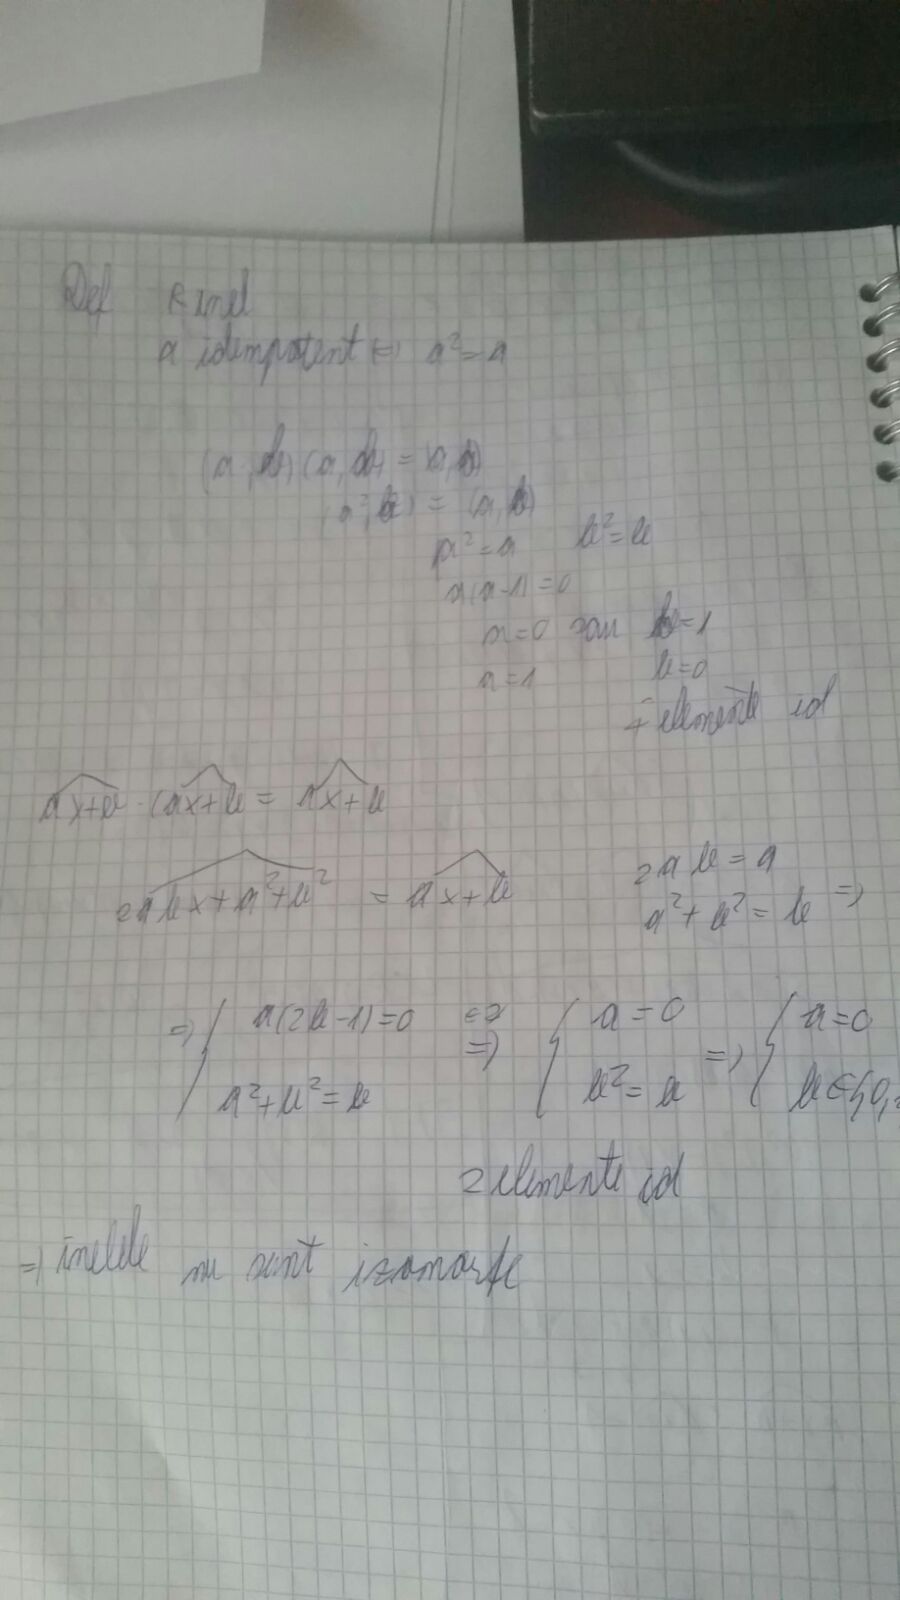 Def R inel
a idempotent ⇔ a² = a
(a, b) (a, b) = (a, b)
(a², b²) = (a, b)
a² = a b² = b
a(a-1) = 0
a=0 sau b=1
a=1 b=0
4 elemente id
ax+b · (ax+b = ax+b
2abx + a² + b² = ax+b
2ab = a
a² + b² = b ⇒
⇒ { a(2b-1)=0 ⇒ { a=0 ⇒ { a=0
a²+b²=b b²=b b∈{0,
2 elemente id
⇒ inelele nu sunt izomorfe